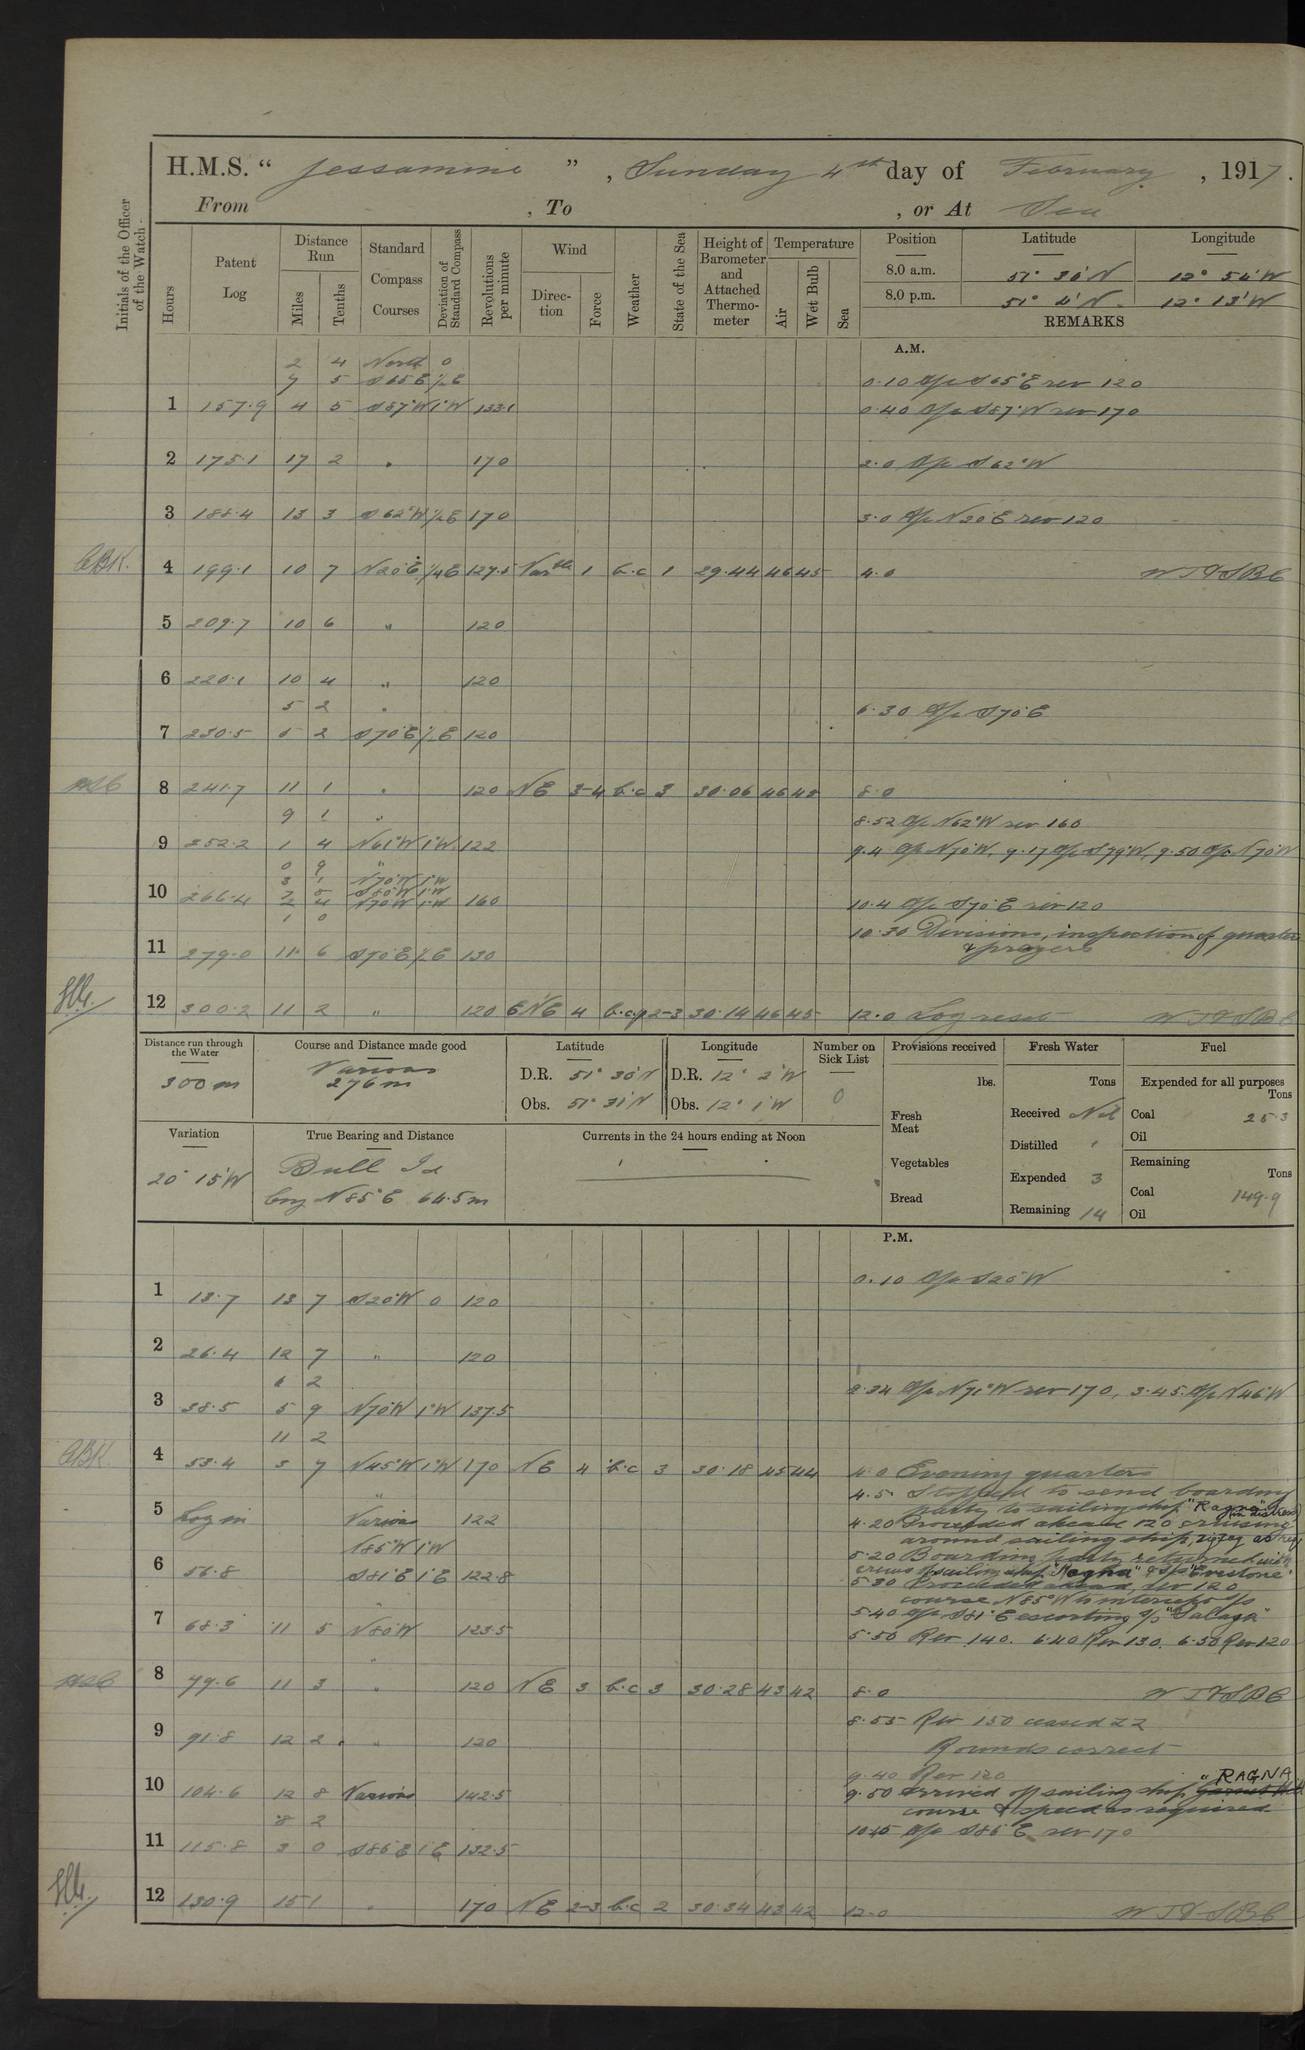 H.M.S. " Jessamine " , Sunday 4th day of February , 1917.
From , To , or At Sea
Initials of the Officer of the Watch.
Hours
Patent Log
Distance Run
Miles
Tenths
Standard Compass Courses
Deviation of Standard Compass
Revolutions per minute
Wind
Direction
Force
Weather
State of the Sea
Height of Barometer and Attached Thermometer
Temperature
Air
Wet Bulb
Sea
Position Latitude Longitude
8.0 a.m. 51° 36'N 12° 54'W
8.0 p.m. 51° 4'N 12° 13'W
REMARKS
A.M.
2 4 North 0
7 5 S65E ½E 0.10 A/c S65°E rev 120
1 157.9 4 5 S87°W 1°W 133.1 0.40 A/c S87°W rev 170
2 175.1 17 2 " 170 2.0 A/c S62°W
3 188.4 13 3 S62°W ½E 170 3.0 A/c N20E rev 120
4 199.1 10 7 N20E ¼E 127.5 1 b.c 1 29.44 46 45 4.0 WT&SBC
5 209.7 10 6 " 120
6 220.1 10 4 " 120
5 2 " 6.30 A/c S70E
7 230.5 5 2 S70E ½E 120
8 241.7 11 1 " 120 NE 3-4 b.c 3 30.06 46 43 8.0
9 1 " 8.52 A/c N62°W rev 160
9 252.2 1 4 N61°W 1°W 122 9.4 A/c N70W, 9.17 A/c S79W, 9.50 A/c N70W
0 9 "
3 1 N70W 1°W
10 266.4 7 5 S80W 1°W
2 4 N70W 1°W 160 10.4 A/c S70E rev 120
1 0 10.30 Divisions, inspection of quarters
& prayers
11 279.0 11 6 S70E ½E 130
12 300.2 11 2 " 120 ENE 4 b.c.p 2-3 30.14 46 45 12.0 Log reset WT&SBC
Distance run through the Water
300 m
Course and Distance made good
Various
276 m
Latitude
D.R. 51° 30'N
Obs. 51° 31'N
Longitude
D.R. 12° 2'W
Obs. 12° 1'W
Number on Sick List
0
Variation
20° 15'W
True Bearing and Distance
Bull Id
brg N85°E 64.5m
Currents in the 24 hours ending at Noon
Provisions received
lbs.
Fresh Meat
Vegetables
Bread
Fresh Water
Tons
Received Nil
Distilled "
Expended 3
Remaining 14
Fuel
Expended for all purposes
Tons
Coal 25.3
Oil
Remaining
Tons
Coal 149.9
Oil
P.M.
0.10 A/c S20W
1 13.7 13 7 S20W 0 120
2 26.4 12 7 " 120
6 2 2.34 A/c N71°W rev 170, 3.45 A/c N46W
3 38.5 5 9 N70W 1°W 137.5
11 2
4 53.4 3 7 N45°W 1°W 170 NE 4 b.c 3 30.18 45 44 4.0 Evening quarters
4.5 Stopped to send boarding
party to sailing ship "Ragna" (in distress)
5 Log in Various 122 4.20 Proceeded ahead 120 cruising
around sailing ship, zigzag as req
N85°W 1°W 5.20 Boarding party returned with
6 56.8 S81°E 1°E 122.8 crews of sailing ship "Ragna" & S/S "Evestone"
5.30 Proceeded ahead, rev 120
course N85°W to intercept S/S
5.40 A/c S81°E escorting S/S "Salaga"
7 68.3 11 5 N80W 123.5 5.50 Rev 140. 6.40 Rev 130. 6.50 Rev 120
8 79.6 11 3 " 120 NE 3 b.c 3 30.28 43 42 8.0 WT&SBC
8.55 Rev 150 ceased ZZ
9 91.8 12 2 " 120 Rounds correct
9.40 Rev 120
10 104.6 12 8 Various 142.5 9.50 Arrived off sailing ship "RAGNA
course & speed as required
8 2 10.15 A/c S86°E rev 170
11 115.8 3 0 S86E 1°E 132.5
12 130.9 15 1 " 170 NE 2-3 b.c 2 30.34 43 42 12.0 WT&SBC